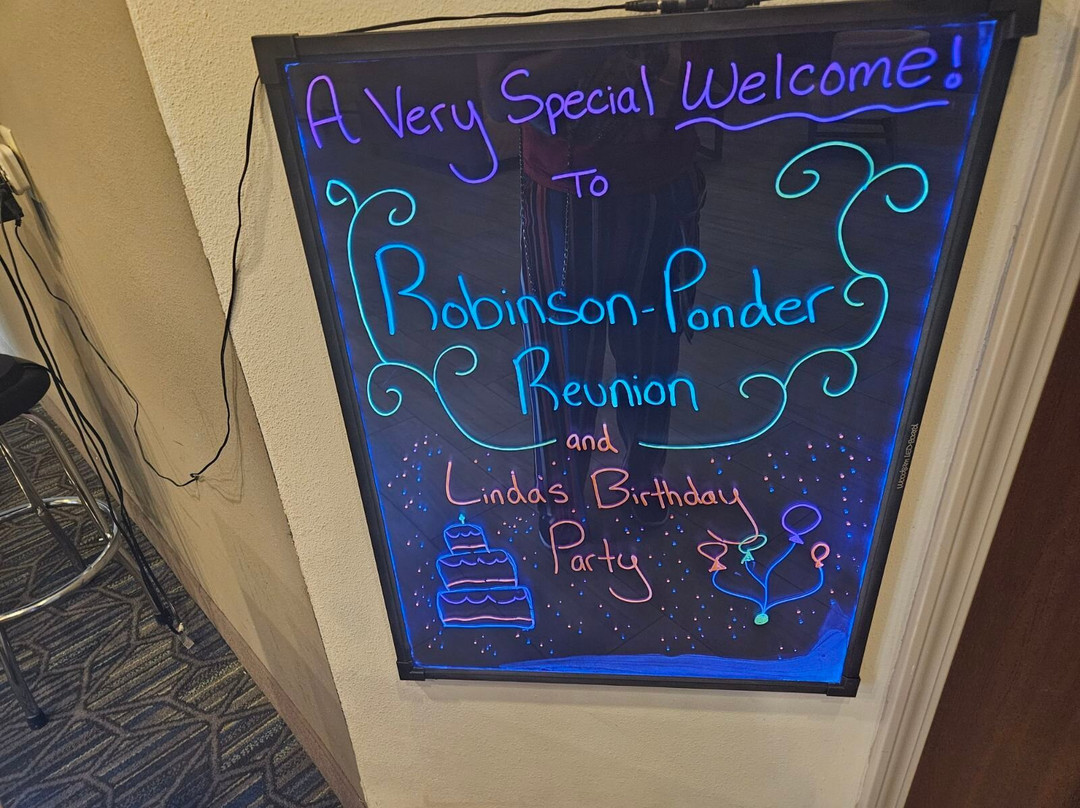 A Very Special Welcome!
To
Robinson-Ponder
Reunion
and
Linda's Birthday
Party
Woodsam LED Board